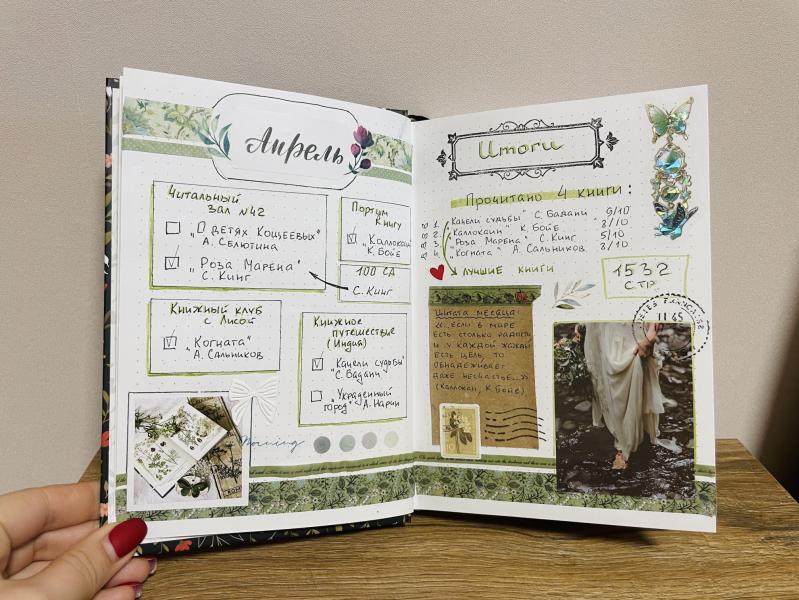 Апрель
Читальный
зал №42
"О детях Кощеевых"
А. Селютина
"Роза Марена"
С. Кинг
Портум
книгу
"Каллокаин"
К. Бойе
100 СД
С. Кинг
Книжный клуб
с Лисой
"Когната"
А. Сальников
Книжное
путешествие
(Индия)
"Качели судьбы"
С. Бадани
"Украденный
город" А. Нарин
Morning
Итоги
Прочитано 4 книги:
1. "Качели судьбы" С. Бадани 9/10
2. "Каллокаин" К. Бойе 8/10
3. "Роза Марена" С. Кинг 5/10
4. "Когната" А. Сальников 8/10
лучшие книги
1532
стр.
Цитата месяца:
"...если в мире
есть столько радости
и у каждой жажды
есть цель, то
обнадеживает
даже несчастье..."
(Каллокаин, К. Бойе)
11 45